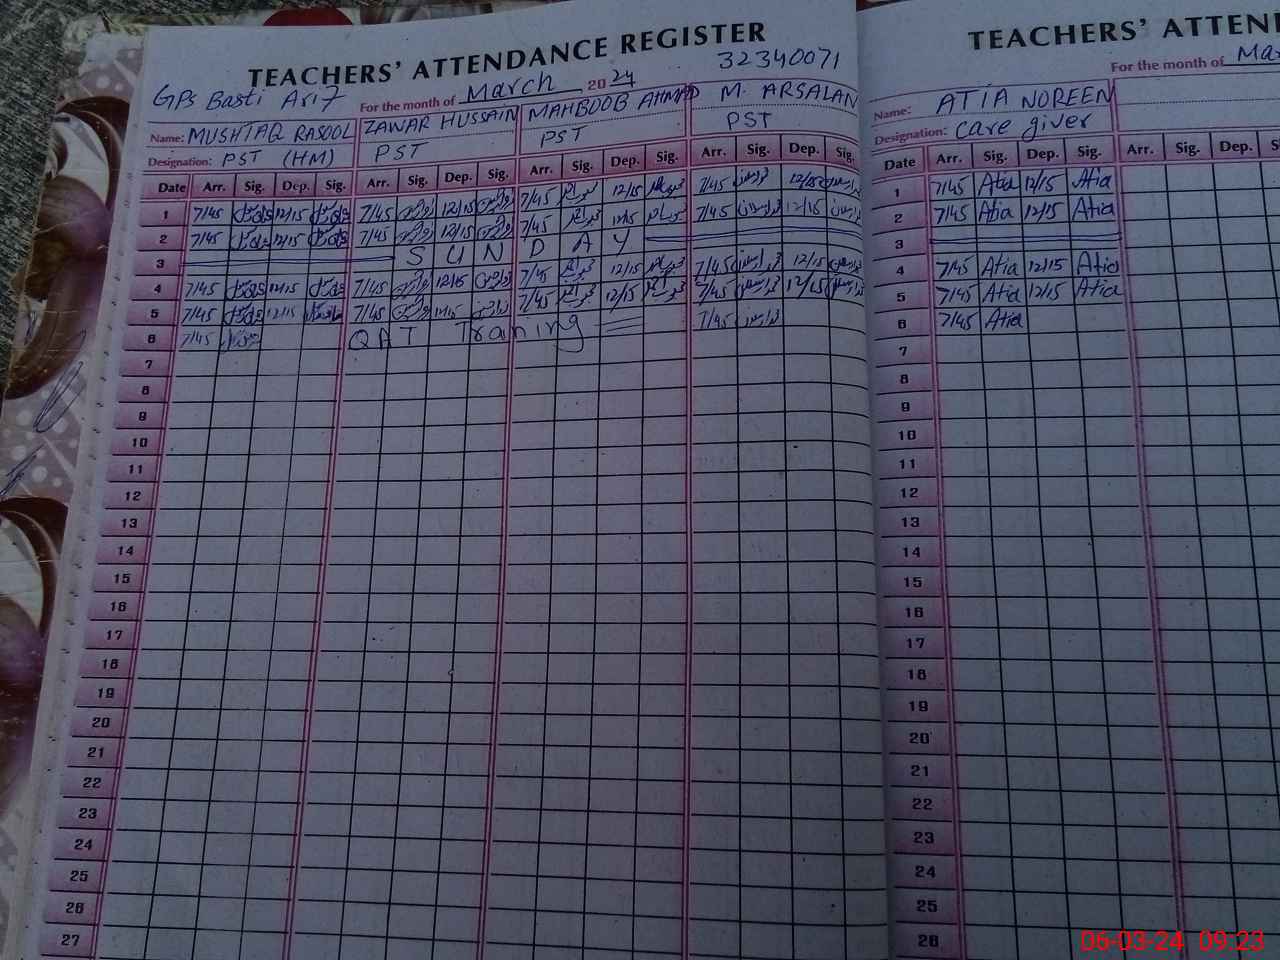 TEACHERS' ATTENDANCE REGISTER
32340071
GPS Basti Arif For the month of March 20 24
Name: MUSHTAQ RASOOL ZAWAR HUSSAIN MAHBOOB AHMAD M. ARSALAN
Designation: PST (HM) PST PST PST
Date Arr. Sig. Dep. Sig. Arr. Sig. Dep. Sig. Arr. Sig. Dep. Sig. Arr. Sig. Dep. Sig.
1 7/45 12/15 7/45 12/15 7/45 12/15 7/45 12/15
2 7/45 12/15 7/45 12/15 7/45 12/15 7/45 12/15
3 SUNDAY
4 7/45 12/15 7/45 12/15 7/45 12/15 7/45 12/15
5 7/45 12/15 7/45 7/45 12/15 7/45 12/15
6 7/45 QAT Training 7/45
7
8
9
10
11
12
13
14
15
16
17
18
19
20
21
22
23
24
25
26
27
TEACHERS' ATTEN
For the month of Mar
Name: ATIA NOREEN
Designation: Care giver
Date Arr. Sig. Dep. Sig. Arr. Sig. Dep. S
1 7/45 Atia 12/15 Atia
2 7/45 Atia 12/15 Atia
3
4 7/45 Atia 12/15 Atia
5 7/45 Atia 12/15 Atia
6 7/45 Atia
7
8
9
10
11
12
13
14
15
16
17
18
19
20
21
22
23
24
25
26
06-03-24 09:23